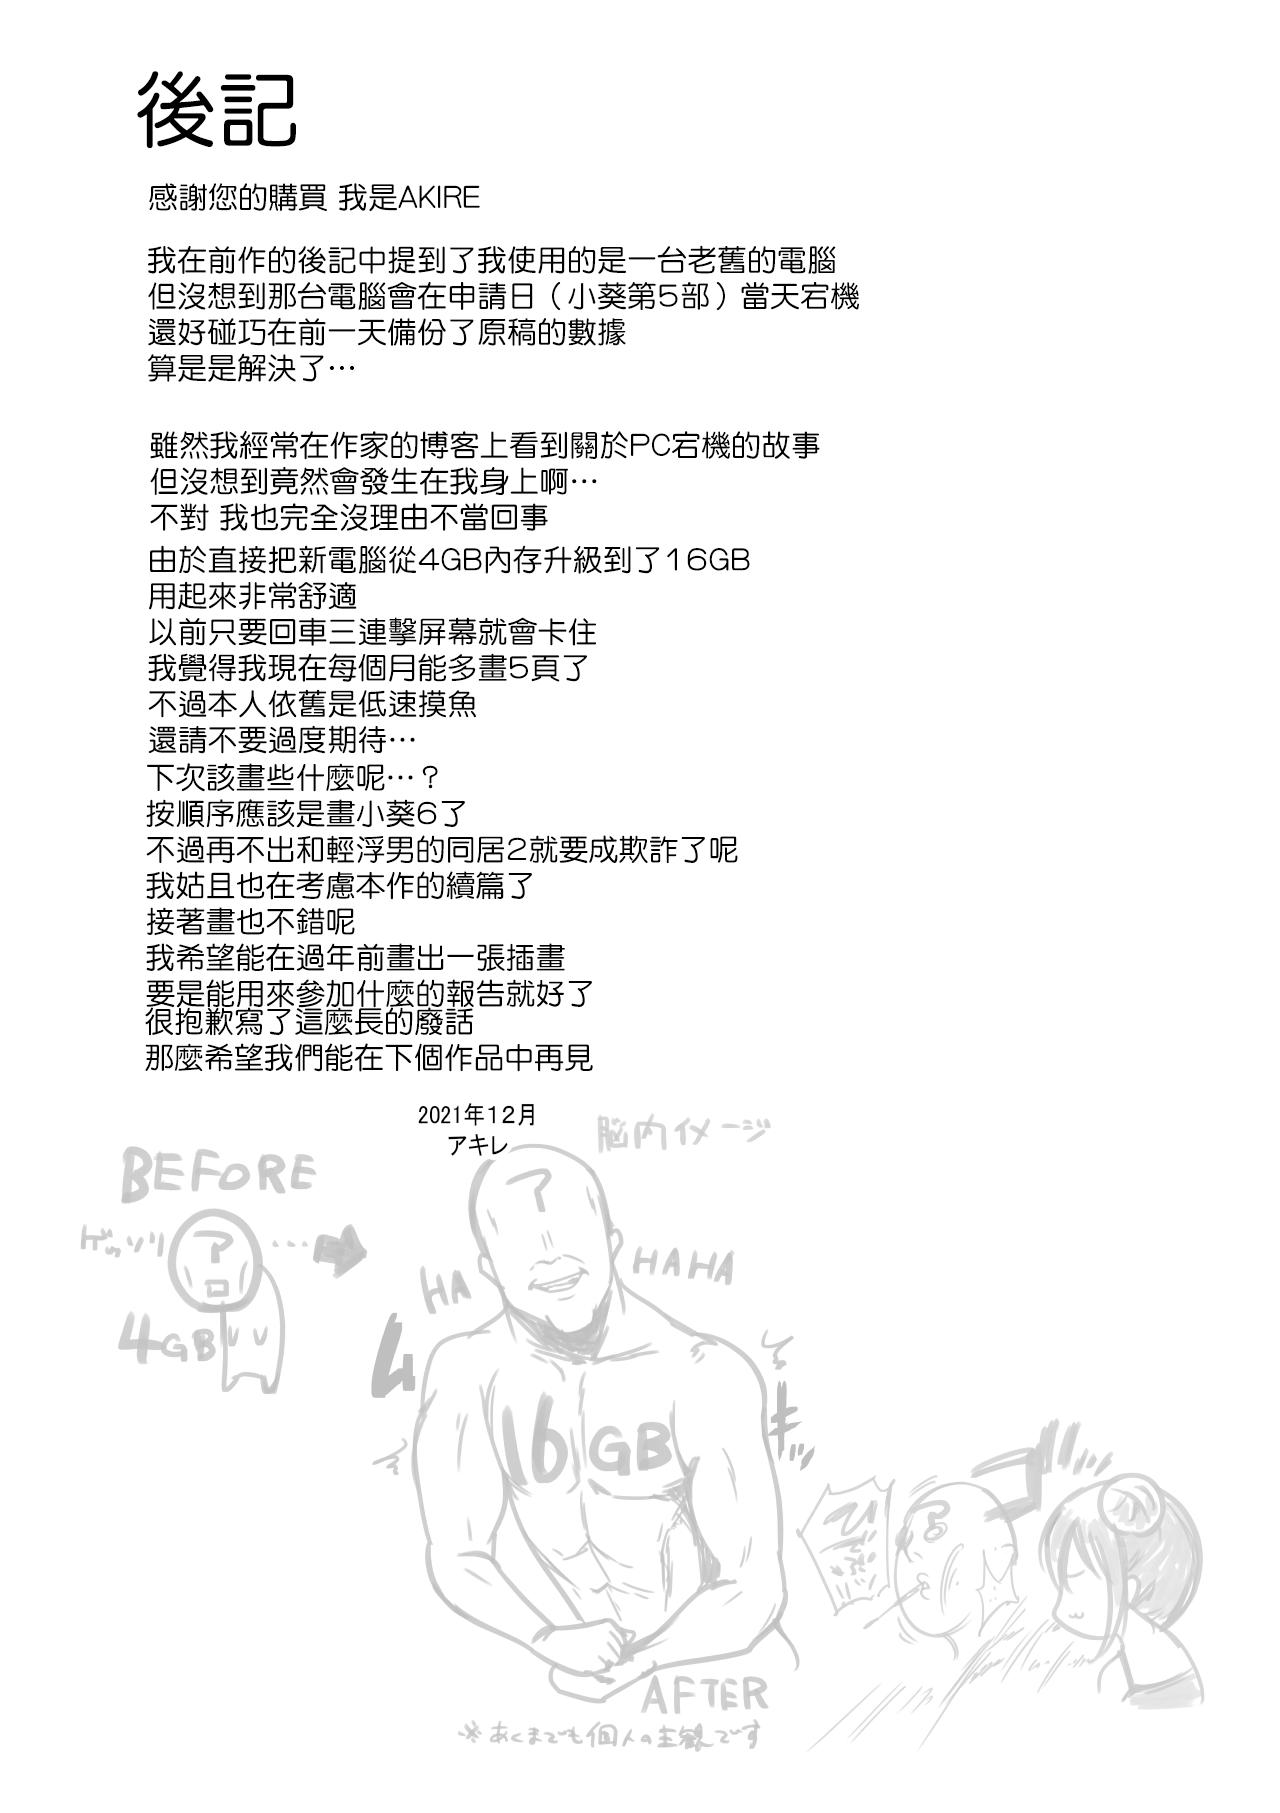 後記
感謝您的購買 我是AKIRE
我在前作的後記中提到了我使用的是一台老舊的電腦
但沒想到那台電腦會在申請日（小葵第5部）當天宕機
還好碰巧在前一天備份了原稿的數據
算是是解決了…
雖然我經常在作家的博客上看到關於PC宕機的故事
但沒想到竟然會發生在我身上啊…
不對 我也完全沒理由不當回事
由於直接把新電腦從4GB內存升級到了16GB
用起來非常舒適
以前只要回車三連擊屏幕就會卡住
我覺得我現在每個月能多畫5頁了
不過本人依舊是低速摸魚
還請不要過度期待…
下次該畫些什麼呢…？
按順序應該是畫小葵6了
不過再不出和輕浮男的同居2就要成欺詐了呢
我姑且也在考慮本作的續篇了
接著畫也不錯呢
我希望能在過年前畫出一張插畫
要是能用來參加什麼的報告就好了
很抱歉寫了這麼長的廢話
那麼希望我們能在下個作品中再見
2021年12月
アキレ
脳内イメージ
BEFORE
ゲッソリ
ア
…
4GB
ア
HA
HAHA
ムキッ
16GB
AFTER
※あくまでも個人の主観です